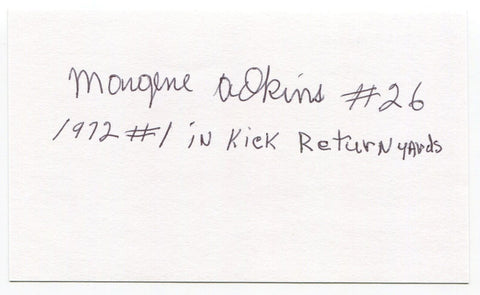 Margene Adkins #26
1972 #1 in Kick Return yards